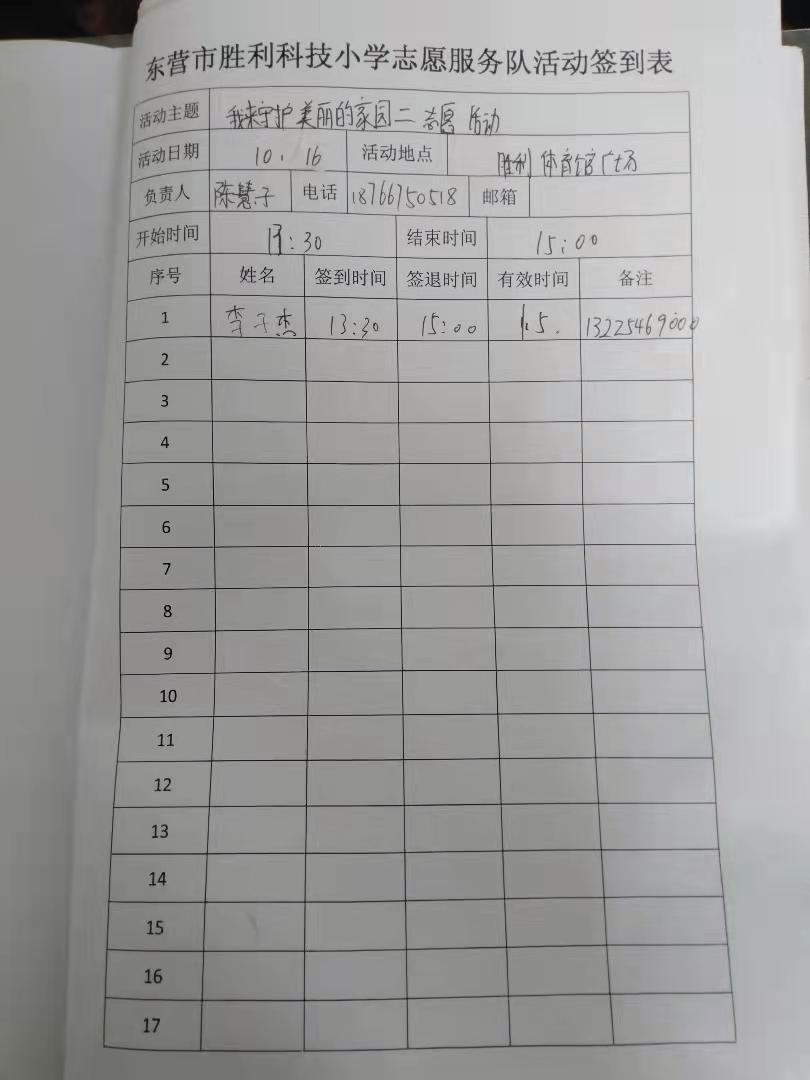 东营市胜利科技小学志愿服务队活动签到表
活动主题 我来守护美丽的家园二 志愿 活动
活动日期 10.16 活动地点 胜利体育馆广场
负责人 陈慧子 电话 18766750518 邮箱
开始时间 13:30 结束时间 15:00
序号 姓名 签到时间 签退时间 有效时间 备注
1 李子杰 13:30 15:00 1.5. 13225469000
2
3
4
5
6
7
8
9
10
11
12
13
14
15
16
17